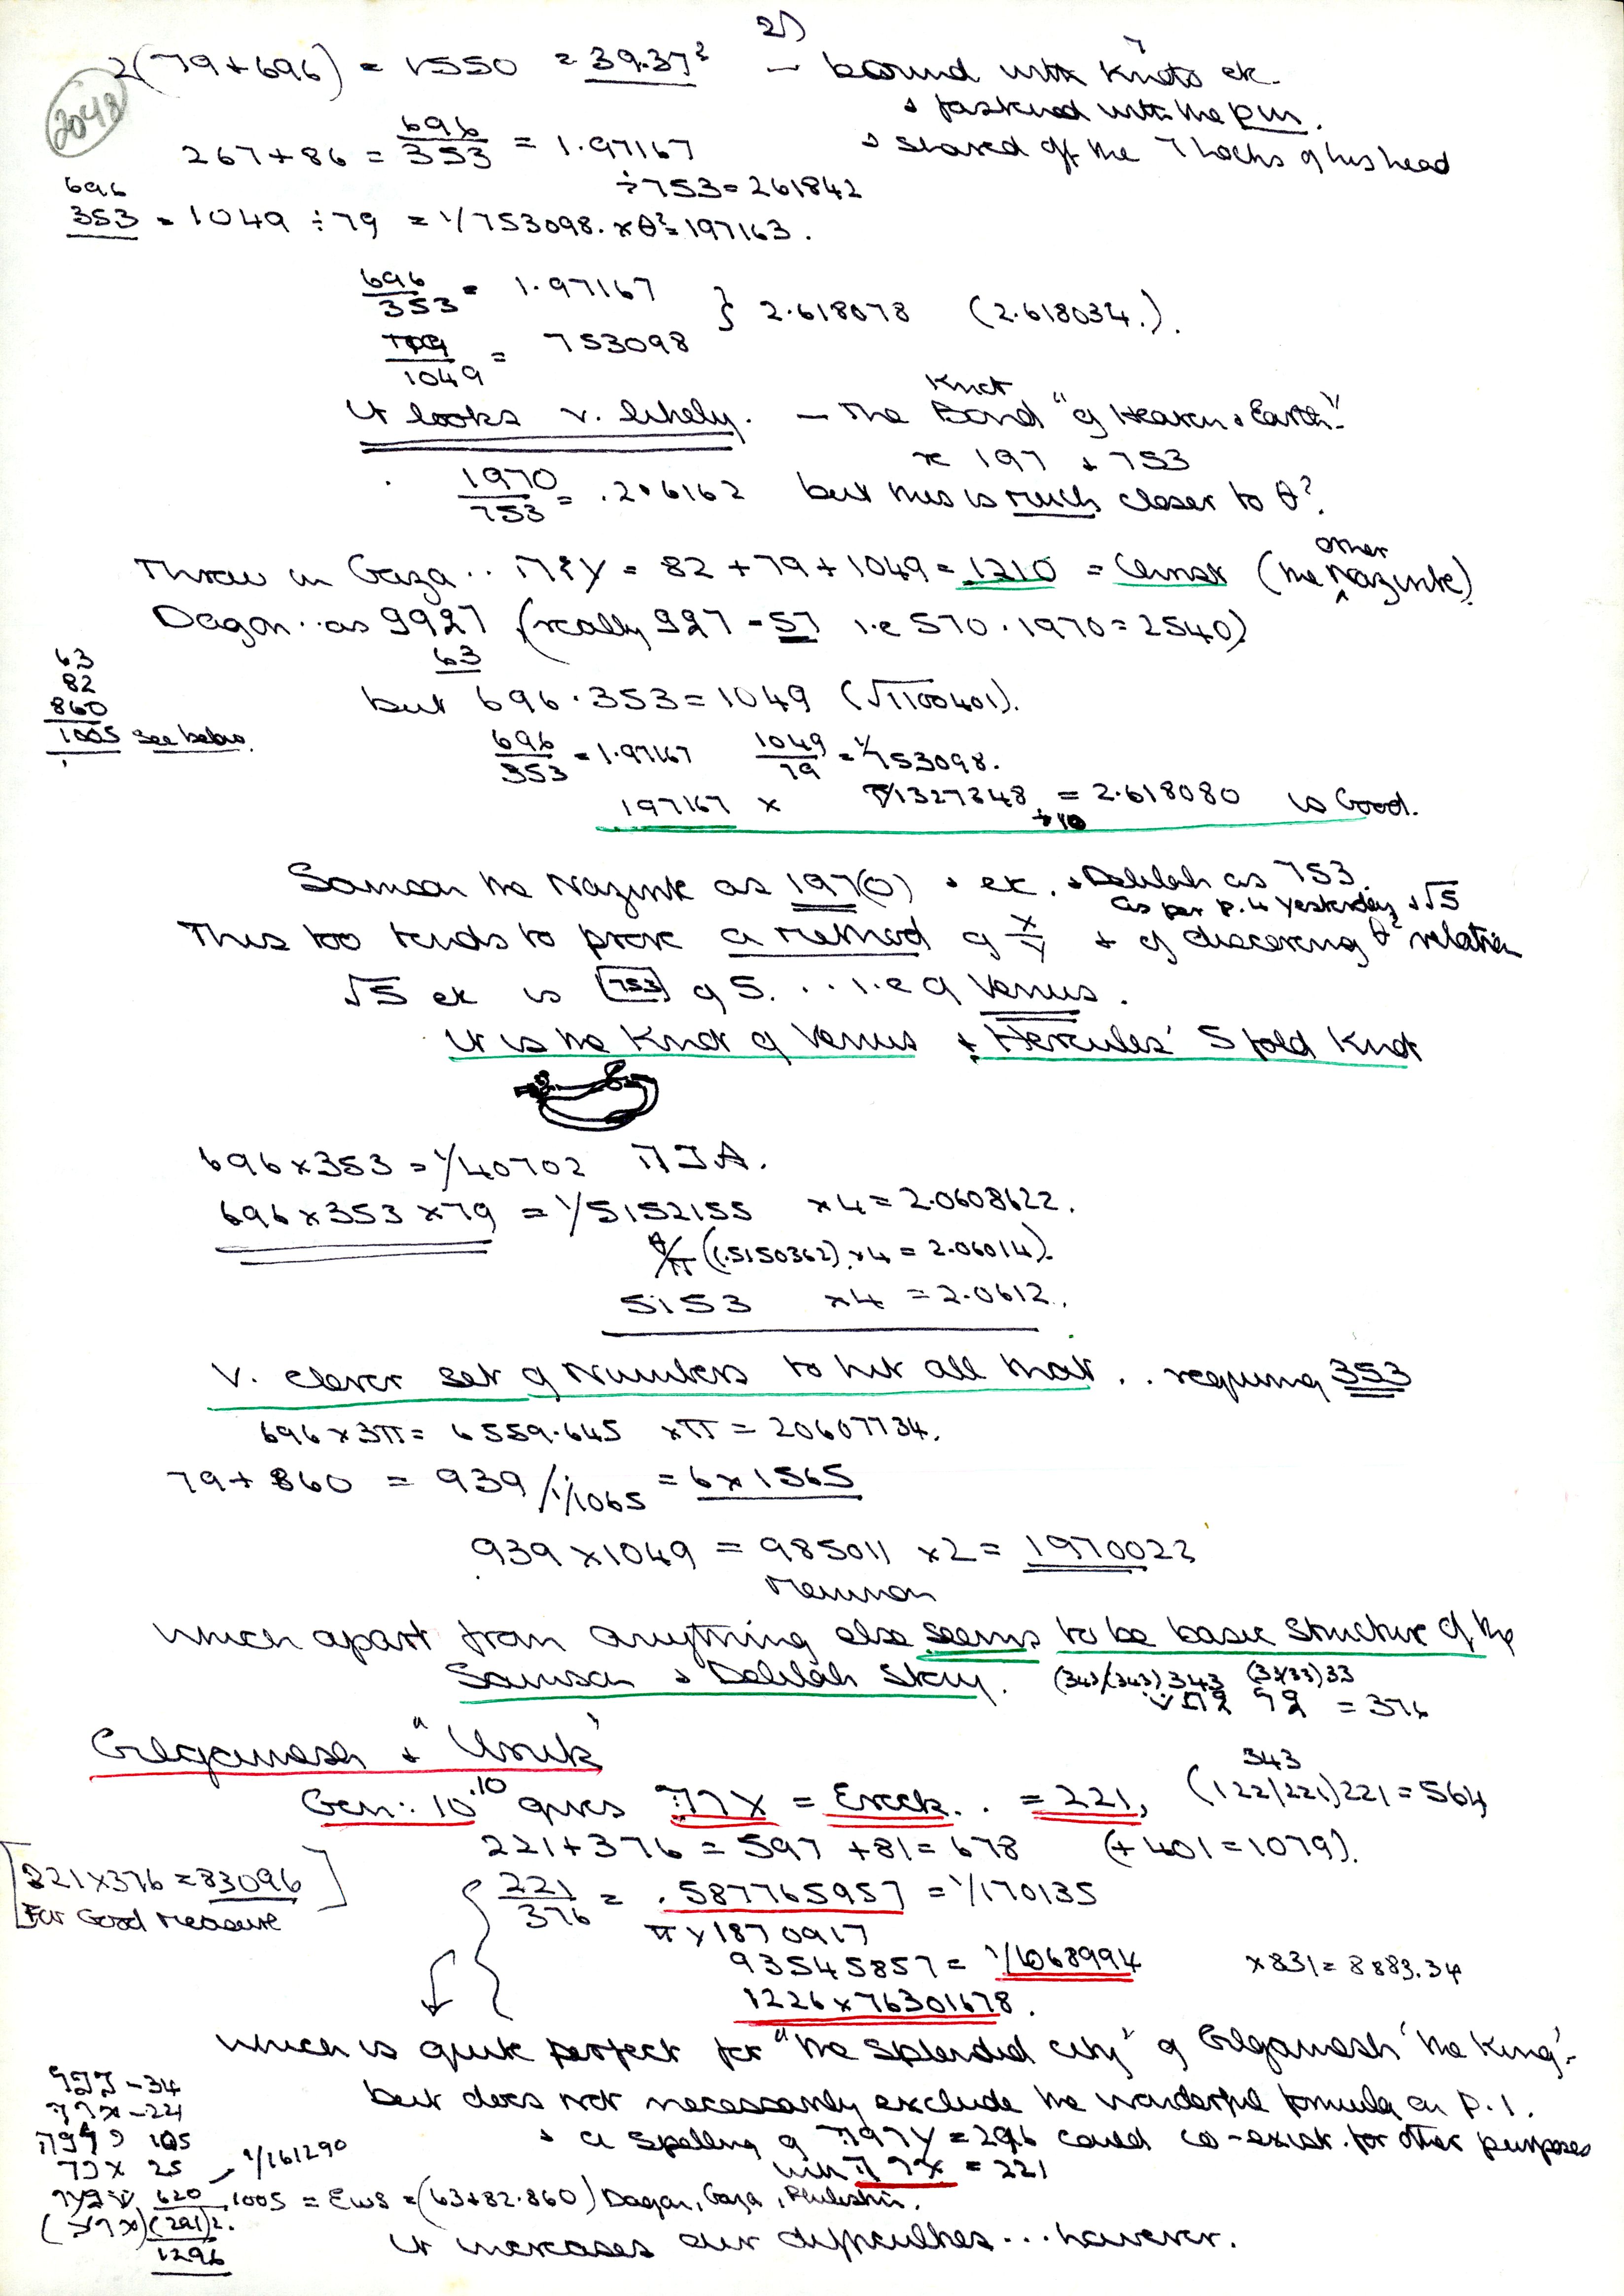 2)
2048
2(79+696) = 1550 = 39.37² — bound with 7 Knots etc.
+ fastened with the pin.
267+86 = 696/353 = 1.97167
+ shaved off the 7 locks of his head
÷753=261842
696
353 = 1049 ÷79 = 1/753098. x θ²=197163.
696/353 = 1.97167 } 2.618078 (2.618034.).
/1049 = 753098
It looks v. likely. — The Knot Bond "of Heaven & Earth"
197 + 753
1970/753 = .2.6162 but this is much closer to θ²
Throw in Gaza.. = 82+79+1049=1210 = (the other Nazirite).
Dagon..as (really - 57 i.e 570.1970=2540)
63
63
82
860
1005 see below.
but 696.353=1049 (√1100401).
696/353 = 1.97167 1049/79 = 1/753098.
197167 x 1327848 ÷10 = 2.618080 is Good.
Samson the Nazirite as 197(0) + etc. + Delilah as 753.
as per p.4 yesterday + √5
This too tends to prove a method of X/Y + of discovering θ² relation
√5 etc is [753] of 5. . . i.e of Venus.
It is the Knot of Venus + Hercules' 5 fold Knot
696x353=1/40702
696x353x79 = 1/5152155 x4=2.0608622.
(1.5150362).x4 = 2.06014).
5153 x4 = 2.0612.
V. clever set of Numbers to hit all that . . requiring 353
696x3π= 6559.645 xπ = 20607734.
79+860 = 939/1/1065 = 6x1565
939x1049 = 985011 x2= 1970022
Memnon
which apart from anything else seems to be basic structure of the
Samson & Delilah Story. (343/343) 343 (33/33) 33
= 376
Gilgamesh + "Uruk"
343
Gen: 10.10 gives = Erech.. = 221, (122/221)221=564
221+376=597 +81=678 (+401=1079).
[221x376=83096]
For Good Measure
221/376 = .587765957 = 1/170135
π x 1870917
93545857= 1/1068994 x831=8883.34
1226x76301678.
which is quite perfect for "the splendid city" of Gilgamesh 'the King'-
but does not necessarily exclude the wonderful formula on P.1.
+ a spelling of =296 could co-exist for other purposes
with = 221
-34
-221
105
25
1/161290
620
1005 = (63+82.860) Dagon, Gaza,
(291)2.
1296
It increases our difficulties...however.